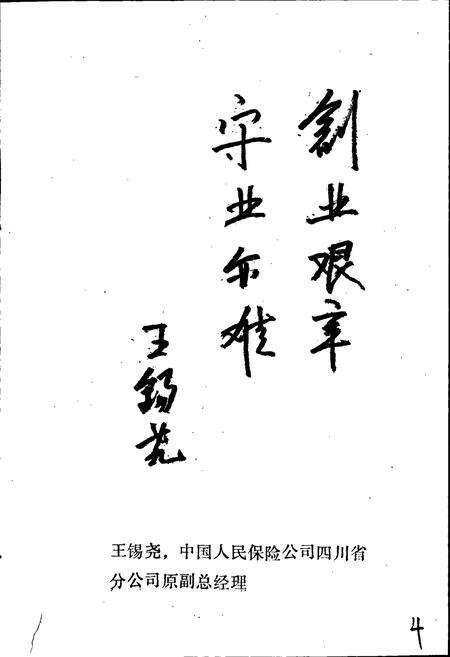 創业艰辛
守业亦难
王锡尧
王锡尧，中国人民保险公司四川省
分公司原副总经理
4